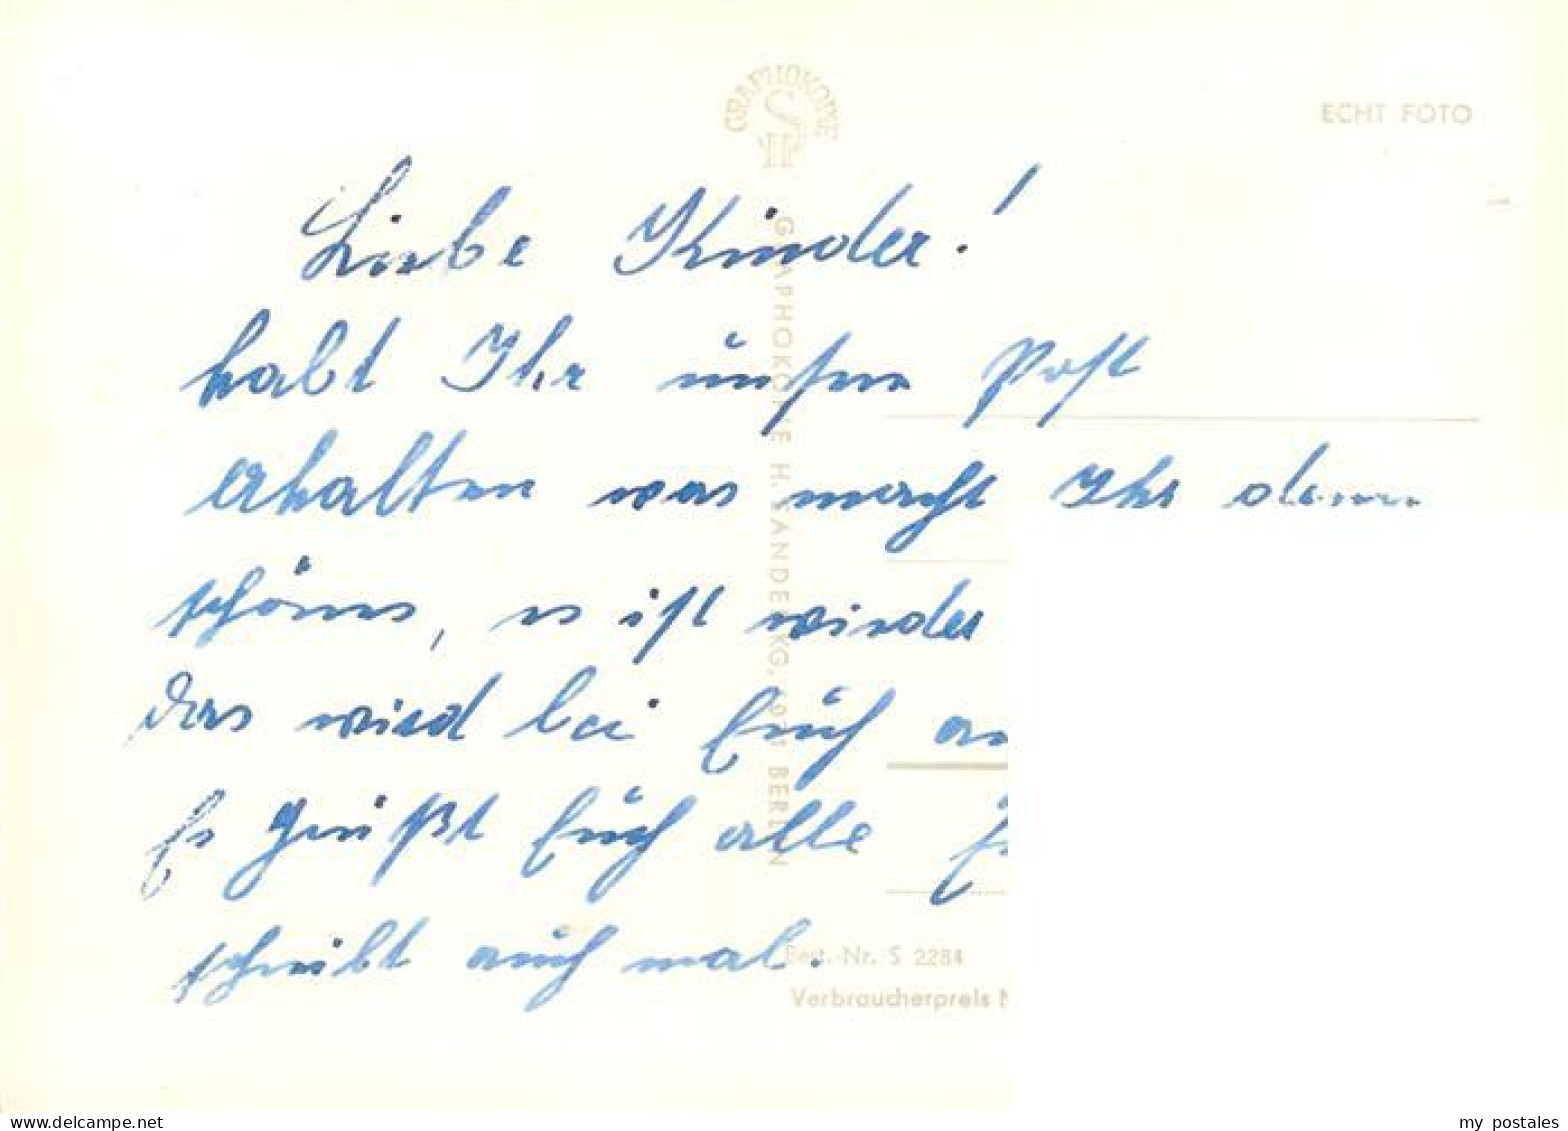 GRAPHOKOPIE
SH
ECHT FOTO
Liebe Kinder!
habt Ihr unsere Post
erhalten was macht Ihr denn
schönes, es ist wieder
das wird bei Euch
Es grüßt Euch alle
schreibt auch mal.
GRAPHOKOPIE H. SANDER KG, BERLIN
Best.-Nr. S 2284
Verbraucherpreis
www.delcampe.net
my_postales